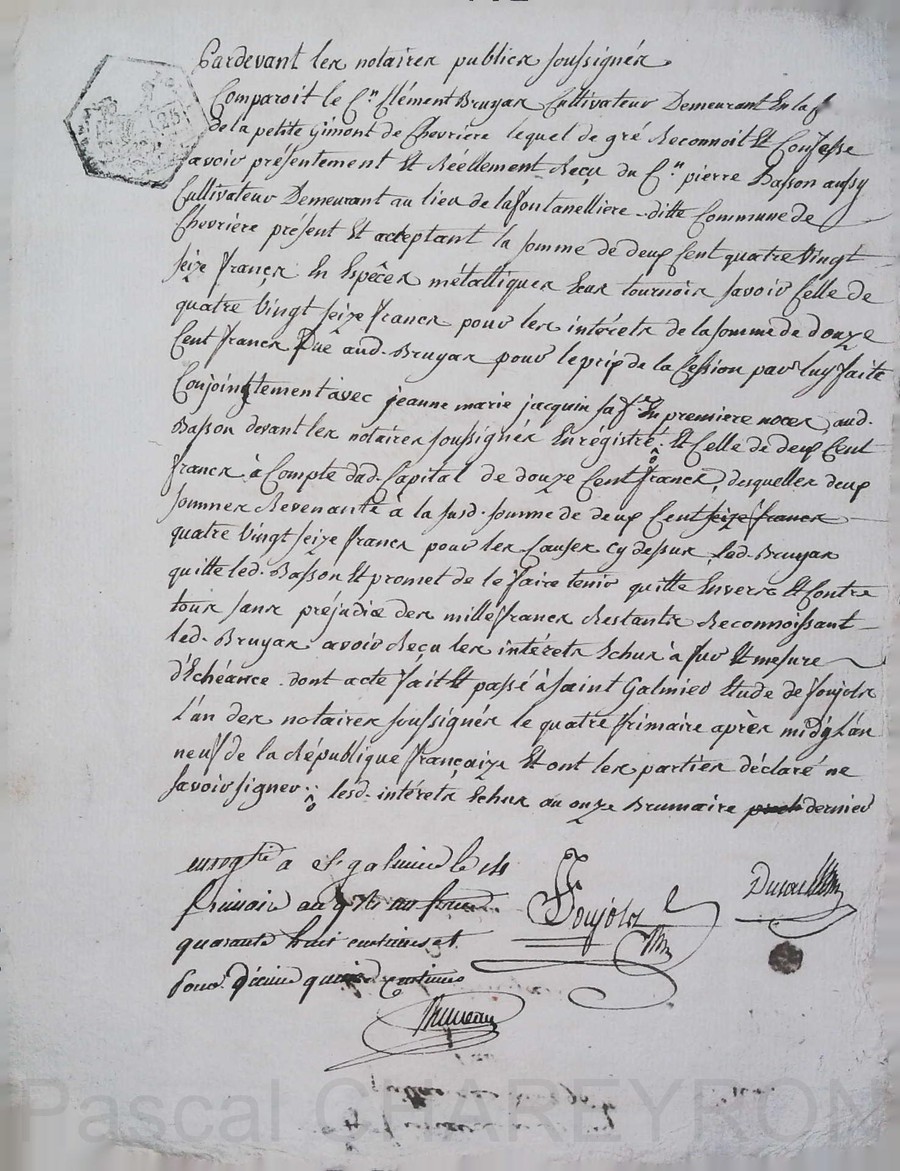 Pardevant les notaires publics soussignés
Comparoit le C.en Clément Bruyas Cultivateur Demeurant En la f
de la petite Gimont de Chevriere lequel de gré Reconnoit Et Confesse
avoir présentement Et Réellement Reçu du C.en pierre Basson aussy
Cultivateur Demeurant au lieu de la fontanelliere ditte Commune de
Chevriere présent Et acceptant la somme de deux Cent quatre Vingt
seize francs En Espêces métalliques Ecus tournois savoir Celle de
quatre Vingt seize francs pour les intérets de la somme de douze
Cent francs Due aud. Bruyas pour le prix de la Cession par luy faite
Conjointement avec jeanne marie jacquin sa f.e En première noces aud.
Basson devant les notaires soussignés Enrégistré. Et Celle de deux Cent
francs à Compte dud. Capital de douze Cent francs, desquelles deux
sommes Revenante à la susd. somme de deux Cent seize francs
quatre Vingt seize francs pour les Causes cy dessus led. Bruyas
quitte led. Basson Et promet de le faire tenir quitte Envers Et Contre
tous sans préjudice des mille francs Restants Reconnoissant
led. Bruyas avoir Reçu les intérets Echus à fur Et mesure
d'Echéance. dont acte fait Et passé à Saint Galmier Etude de Soujols
L'un des notaires soussignés le quatre frimaire après midy L'an
neuf de la République française Et ont les parties déclaré ne
savoir signer lesd. intérets Echus au onze Brumaire dernier
enregtré a st galmier le 14
frimaire an 9
quarante huit centimes et
pour décime centimes
Soujols
Nre
Pascal CHAREYRON